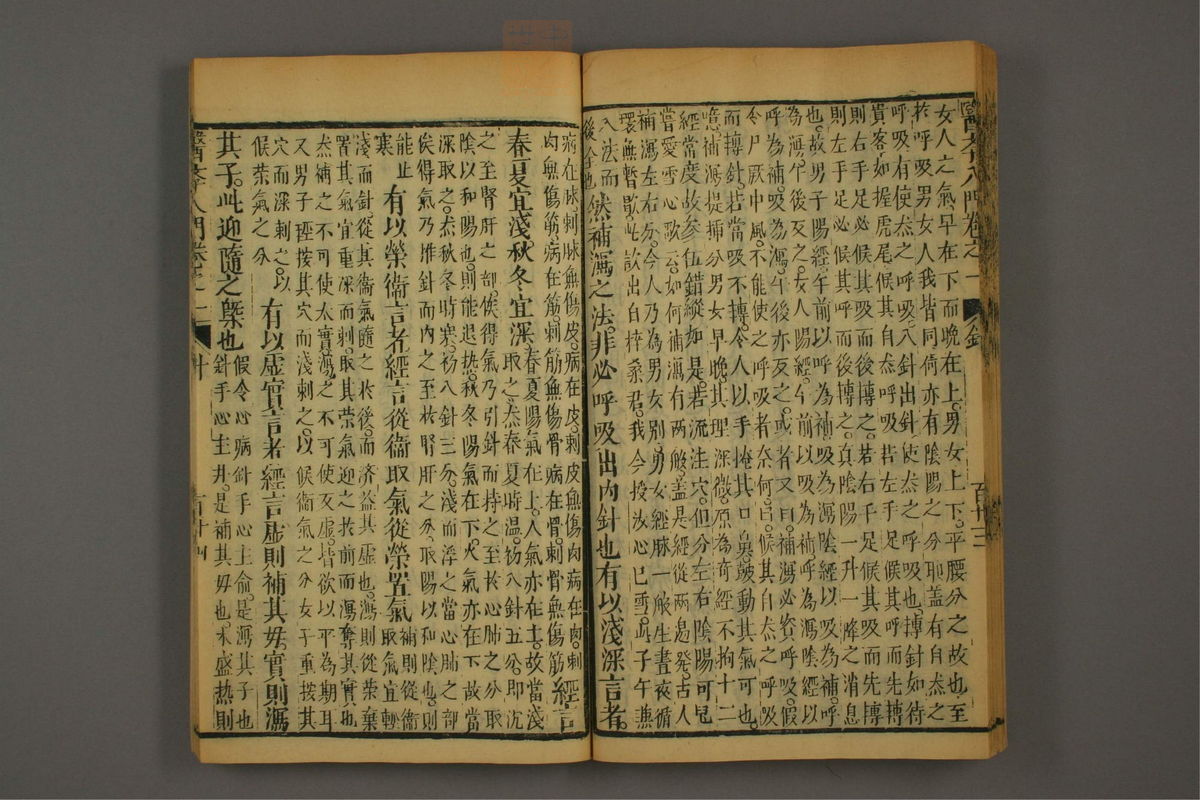 醫李入門卷之一 針 百十三
女人之氣早在下而晚在上男女上下平腰分之故也至
於呼吸男女人我皆同何亦有陰陽之分耶蓋有自然之
呼吸有使然之呼吸入針出針使然之呼吸也轉針如待
貴客如握虎尾候其自然呼吸若左手足候其呼而先轉
則右手足必候其吸而後轉之若右手足候其吸而先轉
則左手足必候其呼而後轉之真陰陽一升一降之消息
也故男子陽經午前以呼為補吸為瀉陰經以吸為補呼
為瀉午後反之女人陽經午前以吸為補呼為瀉陰經以
呼為補吸為瀉午後亦反之或者又曰補瀉必資呼吸假
令尸厥中風不能使之呼吸者奈何曰候其自然之呼吸
而轉針若當吸不轉令人以手掩其口鼻皷動其氣可也
噫補瀉提插分男女早晚其理深微原為竒經不拘十二
經常度故參伍錯綜如是若流注穴但分左右陰陽可也
嘗愛雪心歌云如何補瀉有兩般蓋是經從兩邊發古人
補瀉左右分今人乃為男女別男女經脉一般生晝夜循
環無暫歇此訣出自梓桑君我今授汝心已雪此子午兼
入法而
後全也
然補瀉之法非必呼吸出內針也有以淺深言者
經言
病在脉刺脉無傷皮病在皮刺皮無傷肉病在肉刺
肉無傷筋病在筋刺筋無傷骨病在骨刺骨無傷筋
春夏宜淺秋冬宜深
春夏陽氣在上人氣亦在上故當淺
取之然春夏時温初入針五分即沈
之至腎肝之部俟得氣乃引針而持之至於心肺之分取
陰以和陽也則能退熱秋冬陽氣在下人氣亦在下故當
深取之然秋冬時寒初入針三分淺而浮之當心肺之部
俟得氣乃推針而內之至於腎肝之分取陽以和陰也則
能止
寒
有以榮衛言者經言從衛取氣從榮置氣
補則從衛
取氣宜輕
淺而針從其衛氣隨之於後而济益其虛也瀉則從榮棄
置其氣宜重深而刺取其榮氣迎之於前而瀉奪其實也
然補之不可使太實瀉之不可使反虛皆欲以平為期耳
又男子輕按其穴而淺刺之以候衛氣之分女子重按其
穴而深刺之以
候榮氣之分
有以虛實言者經言虛則補其母實則瀉
其子此迎隨之槩也
假令心病針手心主俞是瀉其子也
針手心主井是補其母也木盛熱則
醫李入門卷之一 針 百十四